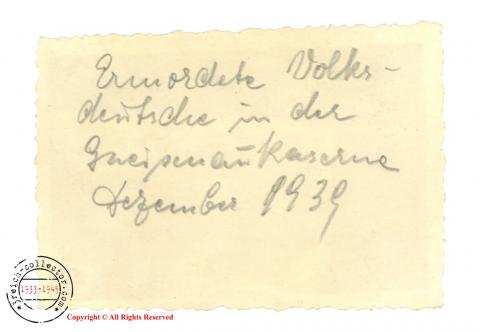 Ermordete Volks-
deutsche in der
Gneisenaukaserne
Dezember 1939
3reich-collector.com
1933-1945
Copyright © All Rights Reserved